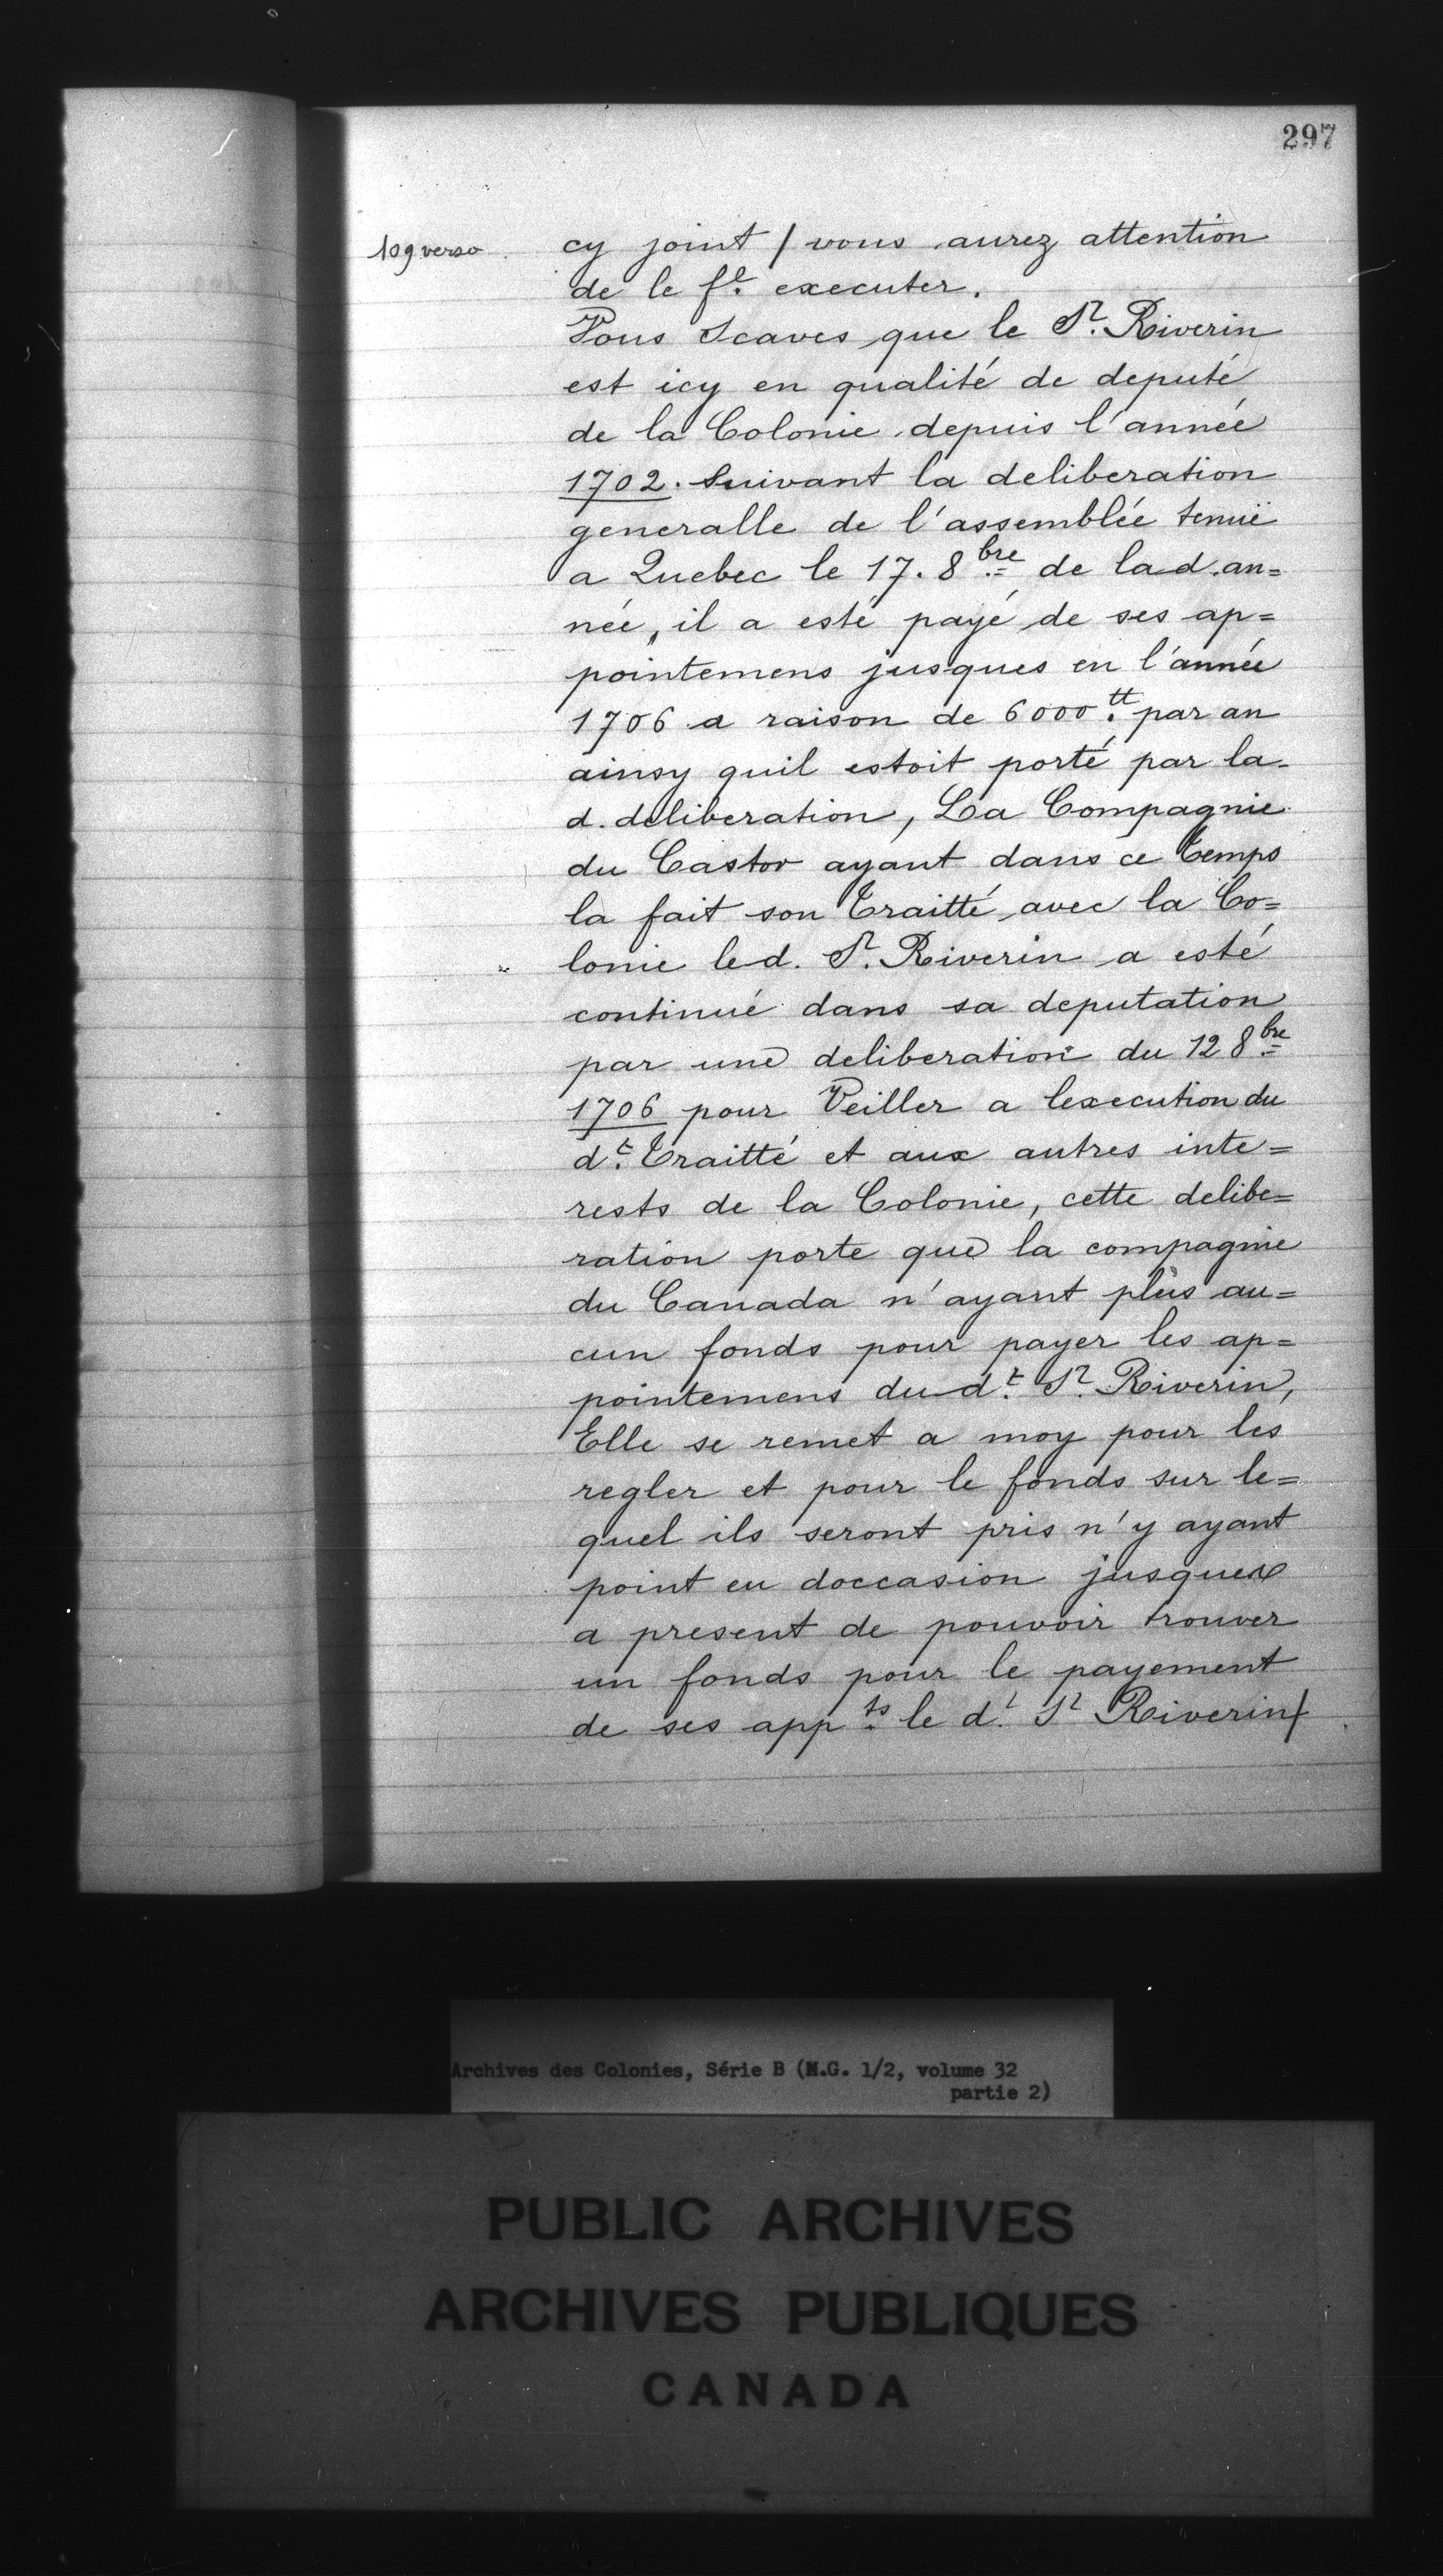 297
109 verso
cy joint / vous aurez attention
de le f.t executer.
Vous Scaves que le S.r Riverin
est icy en qualité de deputé
de la Colonie depuis l'année
1702. Suivant la deliberation
generalle de l'assemblée tenuë
a Quebec le 17. 8bre de lad. an=
née, il a esté payé de ses ap=
pointemens jusques en l'année
1706 a raison de 6000.tt par an
ainsy quil estoit porté par la-
d. deliberation, La Compagnie
du Castor ayant dans ce temps
la fait son Traitté avec la Co=
lonie led. S.r Riverin a esté
continué dans sa deputation
par une deliberation du 12 8bre
1706 pour Veiller a lexecution du
d.t Traitté et aux autres inte=
rests de la Colonie, cette delibe=
ration porte que la compagnie
du Canada n'ayant plus au=
cun fonds pour payer les ap=
pointemens dud.t S.r Riverin,
Elle se remet a moy pour les
regler et pour le fonds sur le=
quel ils seront pris n'y ayant
point eu doccasion jusques
a present de pouvoir trouver
un fonds pour le payement
de ses app.ts le d.t S.r Riverin/
Archives des Colonies, Série B (M.G. 1/2, volume 32
partie 2)
PUBLIC ARCHIVES
ARCHIVES PUBLIQUES
CANADA